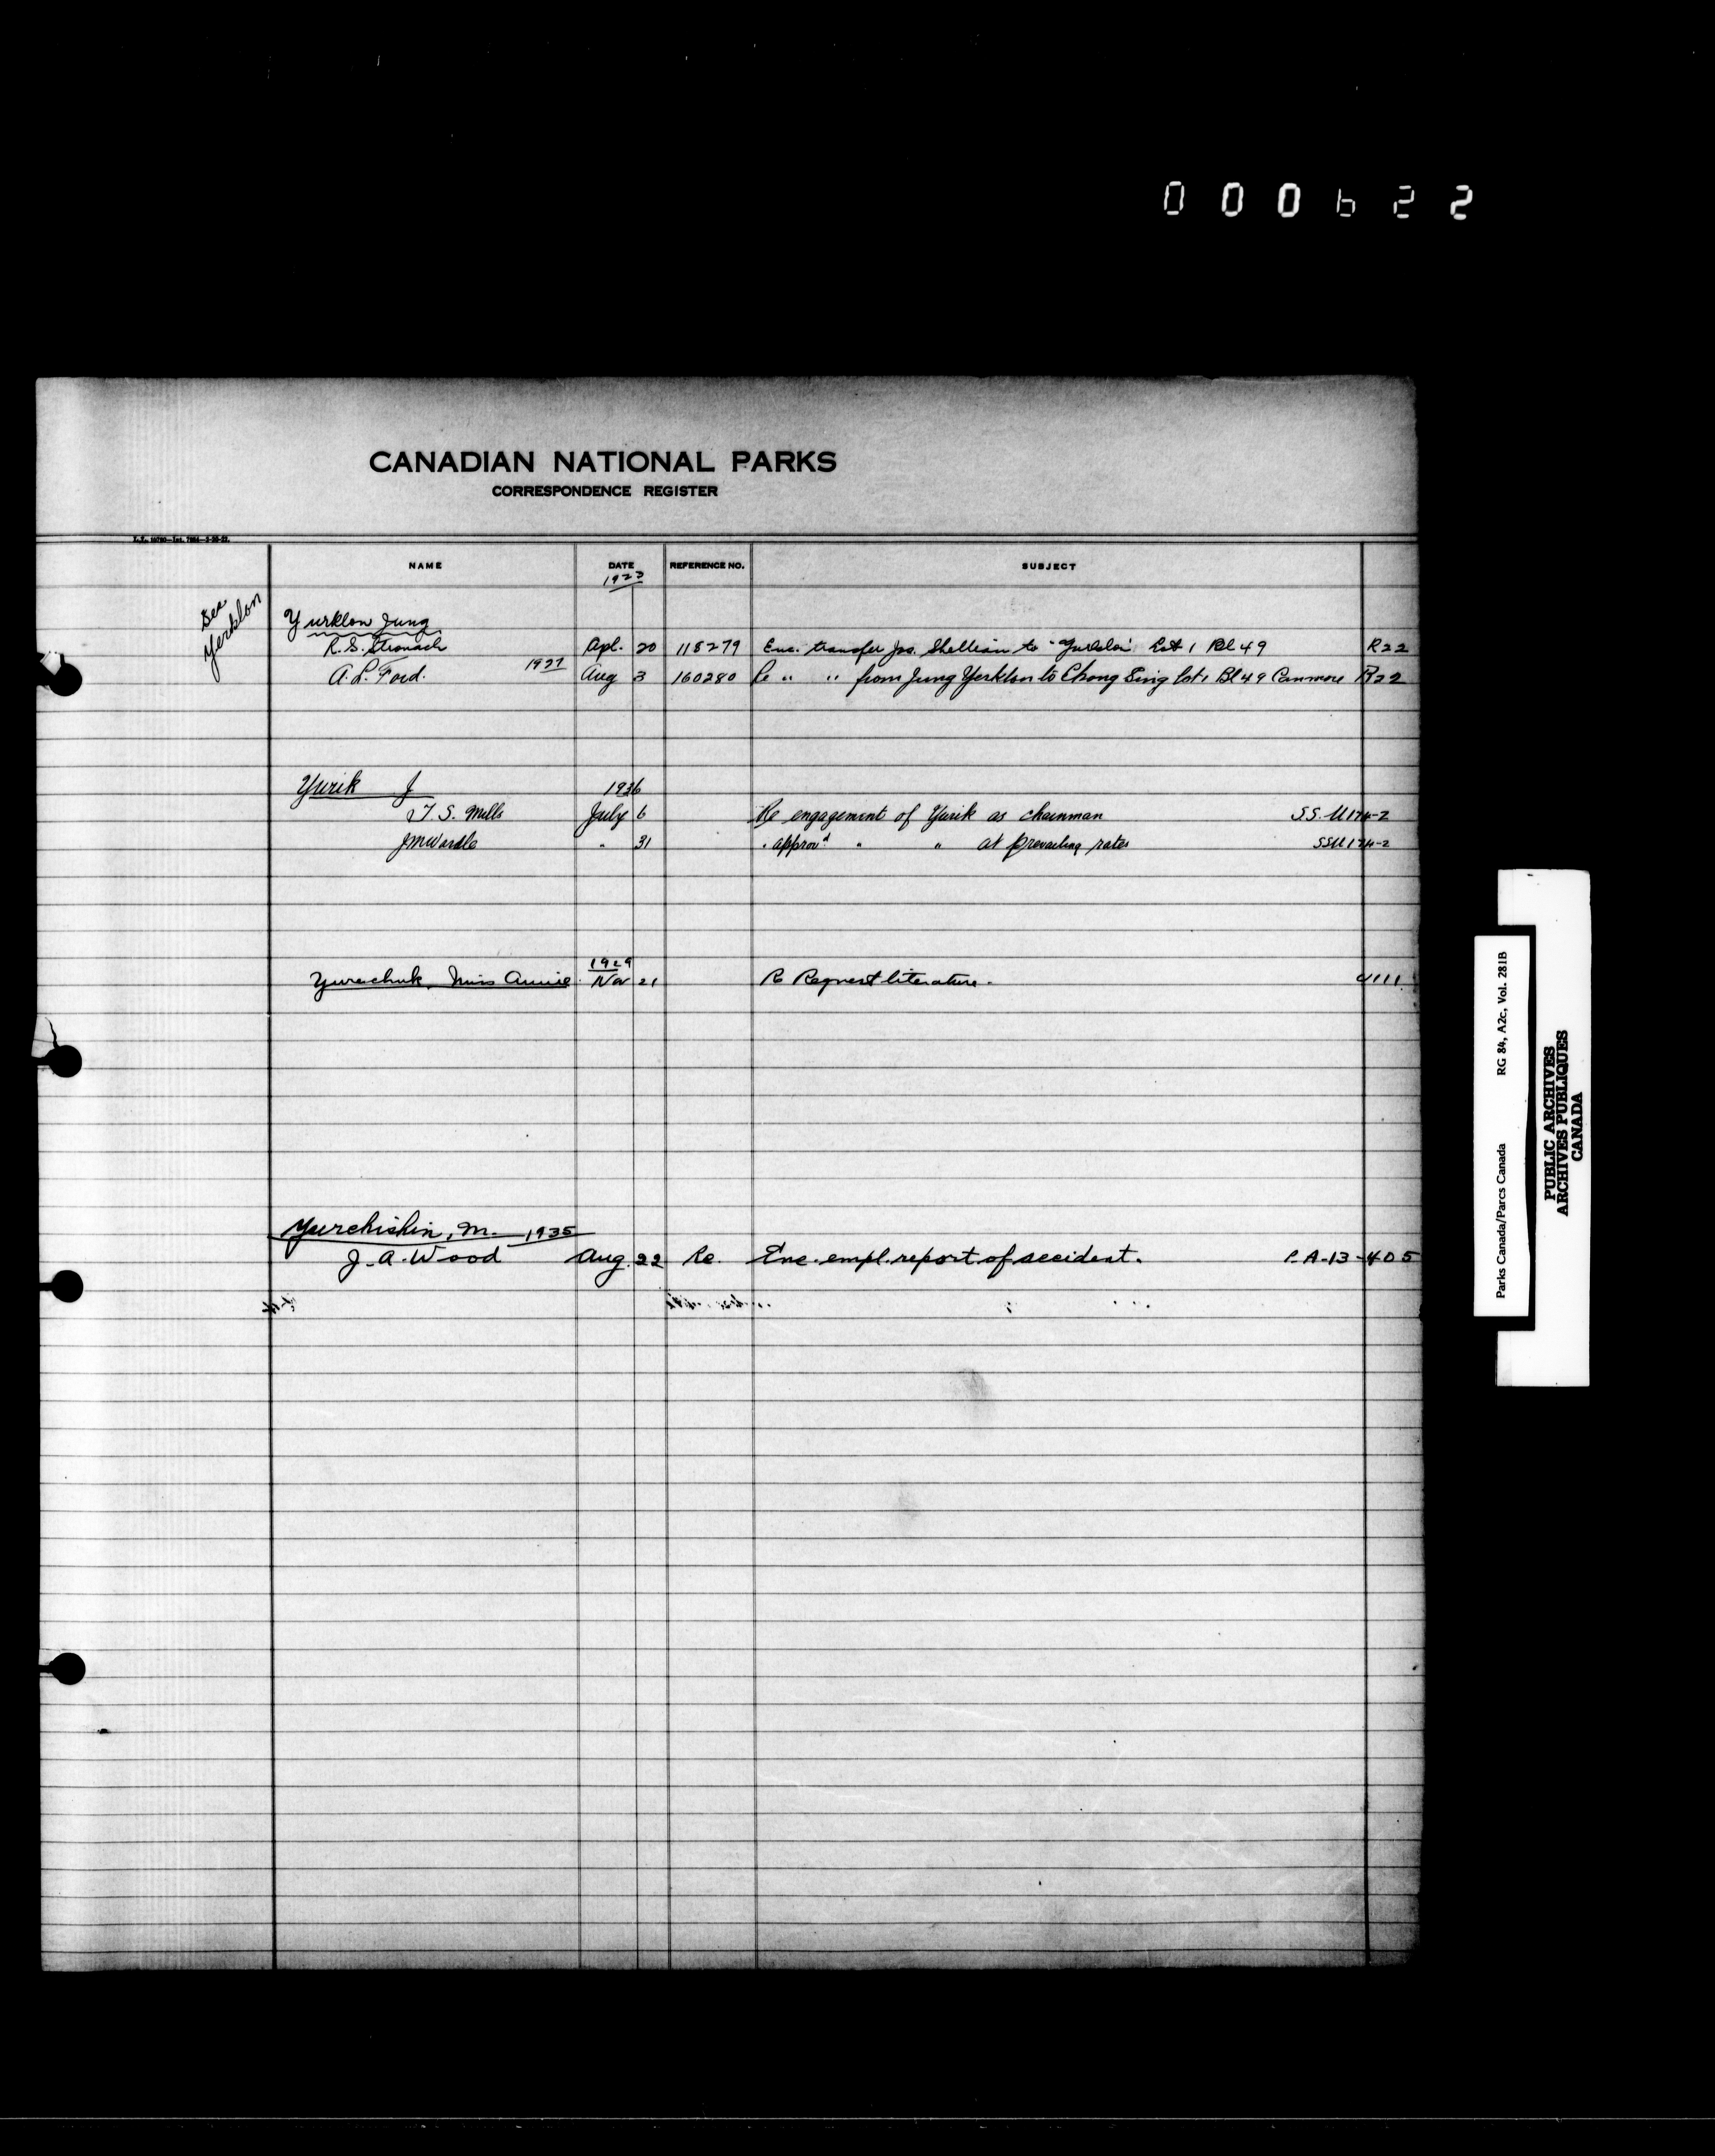 000622
CANADIAN NATIONAL PARKS
CORRESPONDENCE REGISTER
NAME DATE REFERENCE NO. SUBJECT
1923
See Yerklon
Yurklon Jung
R. S. Stronach Apl. 20 118279 Enc. transfer Jos. Shellian to "Yurklon" Lot 1 Bl 49 R22
A. L. Ford. 1927 Aug 3 160280 Re " " from Jung Yerklon to Chong Sing lot 1 Bl 49 Canmore R22
Yurik J 1936
T. S. Mills July 6 Re engagement of Yurik as chainman SS. U174-2
J M Wardle " 31 " approv'd " " at prevailing rates SSU174-2
1929
Yurechuk, Miss Annie. Nov 21 Re Request literature. U111.
Yurchishin, M. 1935
J. A. Wood Aug. 22 Re. Enc. empl. report of accident. P.A-13-405
Parks Canada/Parcs Canada RG 84, A2c, Vol. 281B
PUBLIC ARCHIVES
ARCHIVES PUBLIQUES
CANADA